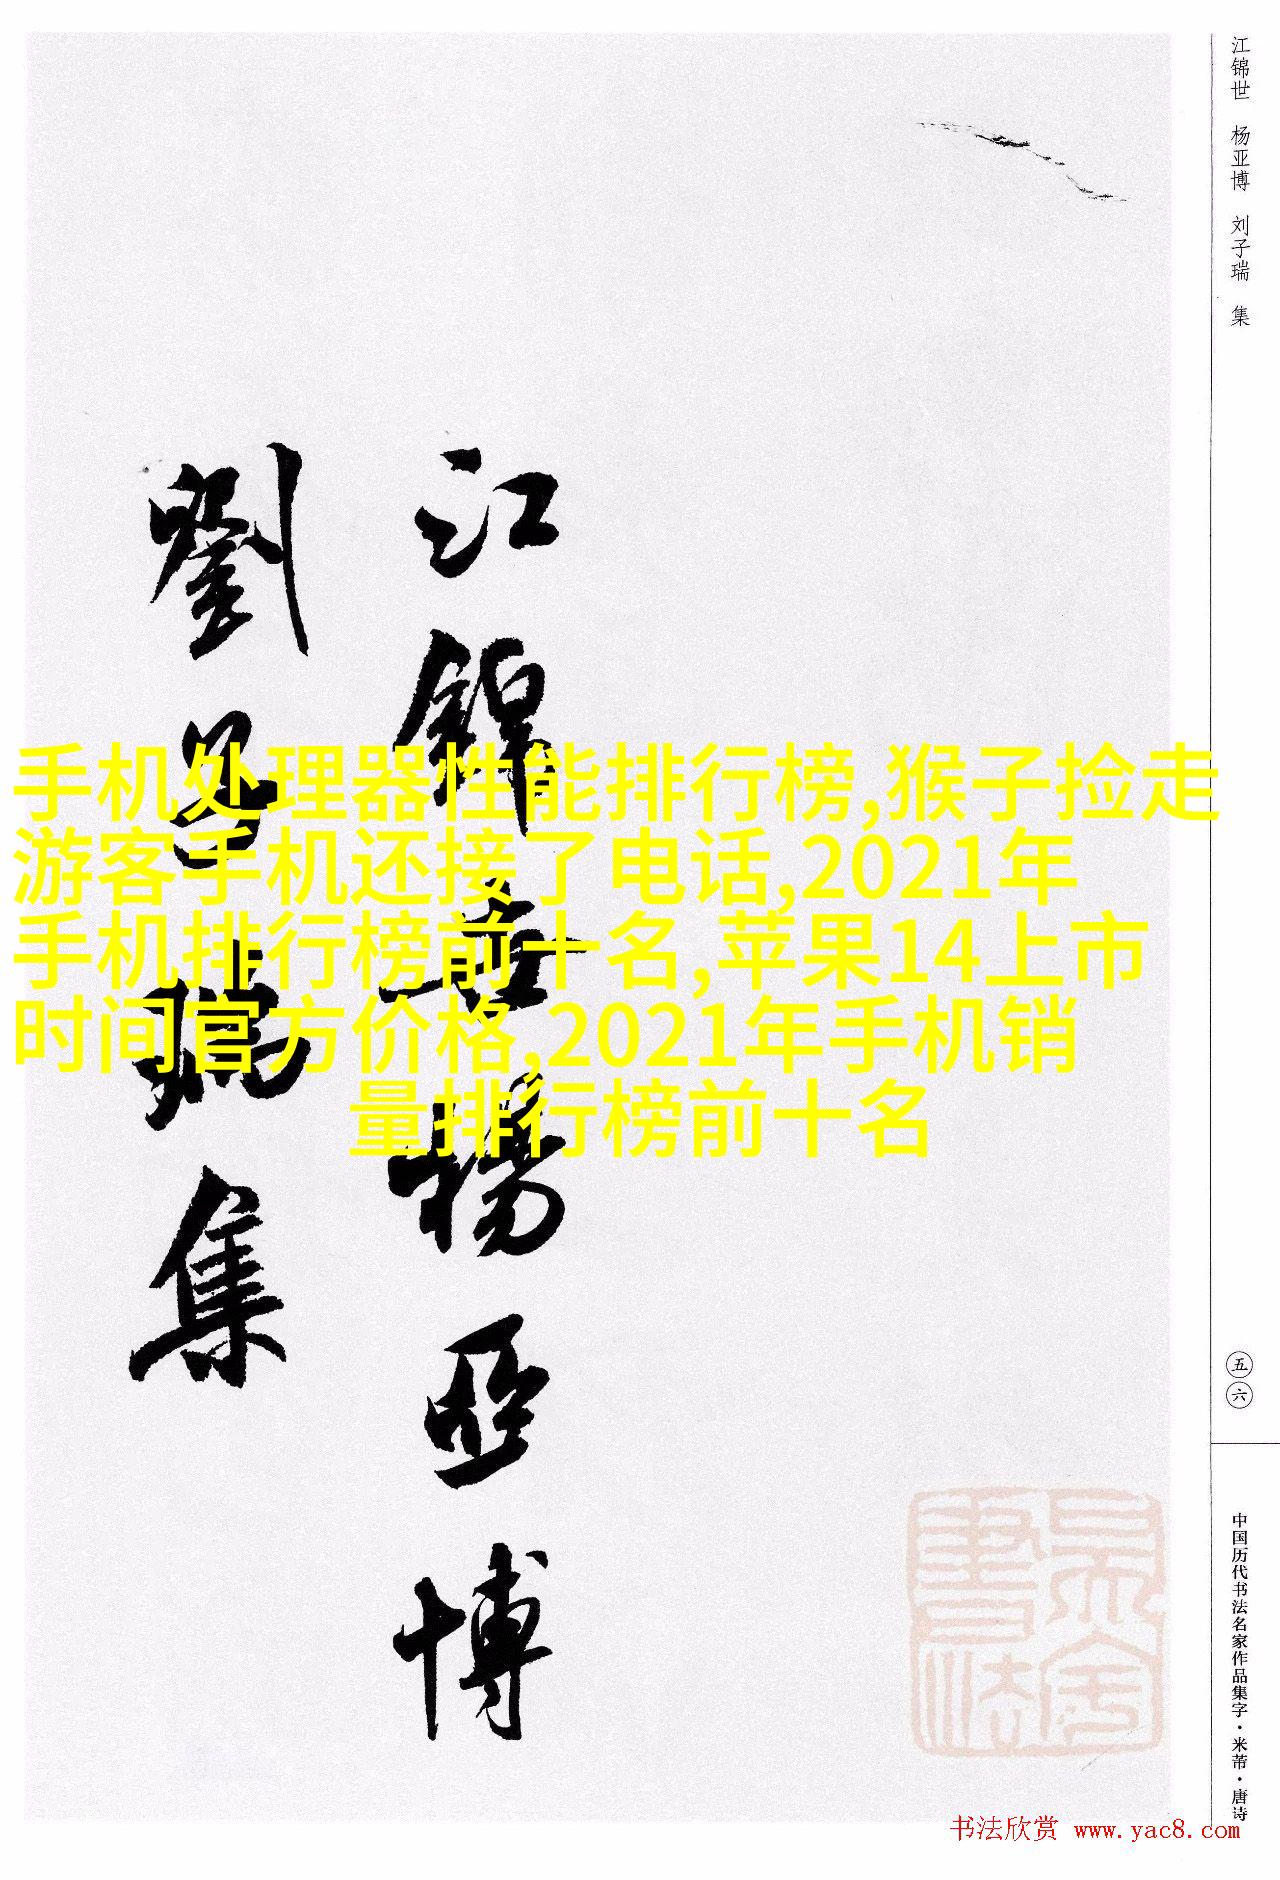 江锦世 杨亚博 刘子瑞 集
江錦世楊亞博
劉子瑞集
手机处理器性能排行榜,猴子捡走
游客手机还接了电话,2021年
手机排行榜前十名,苹果14上市
时间官方价格,2021年手机销
量排行榜前十名
五六
中国历代书法名家作品集字·米芾·唐诗
书法欣赏 www.yac8.com